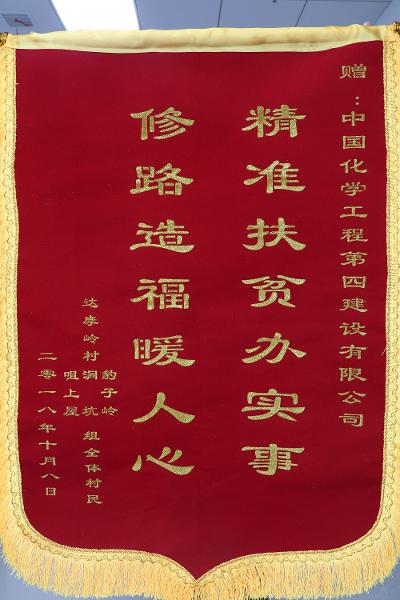 赠：中国化学工程第四建设有限公司
精准扶贫办实事
修路造福暖人心
豹子岭
达岭村 洞坑 组全体村民
咀上屋
二零一八年十月八日